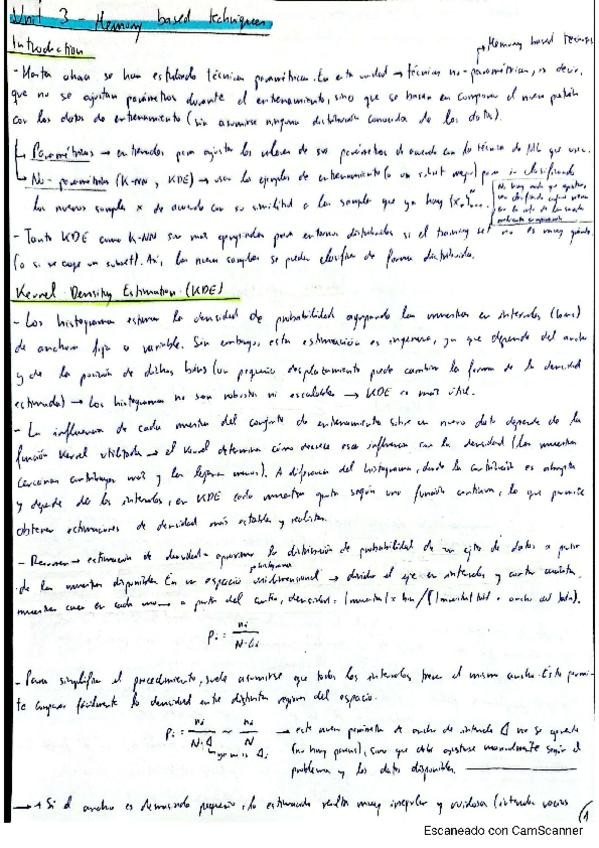 Unit 3 - Memory based techniques
Memory based techniques
Introduction
- Hasta ahora se han estudiado técnicas paramétricas. En esta unidad → técnicas no-paramétricas, es decir,
que no se ajustan parámetros durante el entrenamiento, sino que se basan en comparar el nuevo patrón
con los datos de entrenamiento (sin asumirse ninguna distribución conocida de los datos).
Paramétricas → entrenadas para ajustar los valores de sus parámetros de acuerdo con la técnica de ML que usen.
No-paramétricas (K-NN, KDE) → usan los ejemplos de entrenamiento (o un subset mejor) para clasificando
los nuevos samples x de acuerdo con su similitud a los samples que ya hay
No hay nada que ajustar,
- Tanto KDE como K-NN son más apropiadas para entornos distribuidos si el training set no es muy grande
(o si se coge un subset). Así, los nuevos samples se pueden clasificar de forma distribuida.
Kernel Density Estimation (KDE)
- Los histogramas estiman la densidad de probabilidad agrupando las muestras en intervalos (bins)
de anchura fija o variable. Sin embargo, esta estimación es ingenua, ya que depende del ancho
y de la posición de dichos bins (un pequeño desplazamiento puede cambiar la forma de la densidad
estimada) → Los histogramas no son robustos ni escalables → KDE es más útil.
- La influencia de cada muestra del conjunto de entrenamiento sobre un nuevo dato depende de la
función kernel utilizada → el kernel determina cómo decrece esa influencia con la densidad (las muestras
cercanas contribuyen más y las lejanas menos). A diferencia del histograma, donde la contribución es abrupta
y depende de los intervalos, en KDE cada muestra aporta según una función continua, lo que permite
obtener estimaciones de densidad más estables y realistas.
- Resumen → estimación de densidad = aproximar la distribución de probabilidad de un cjto de datos a partir
de las muestras disponibles. En un espacio unidimensional → dividir el eje en intervalos y contar cuántas
muestras caen en cada uno → a partir del conteo, densidad = |muestras| x bin / (|muestras| total · ancho del bin).
Pi = ni / N·Δi
- Para simplificar el procedimiento, suele asumirse que todos los intervalos tienen el mismo ancho. Esto permi-
te comparar fácilmente la densidad entre distintas regiones del espacio.
Pi = ni / N·Δ ~ ni / N → este nuevo parámetro de ancho de intervalo Δ no se aprende
ya no es Δi (no hay pesos), sino que debe ajustarse manualmente según el
problema y los datos disponibles.
→ Si el ancho es demasiado pequeño, la estimación resulta muy irregular y ruidosa (intervalos vacíos
1
Escaneado con CamScanner